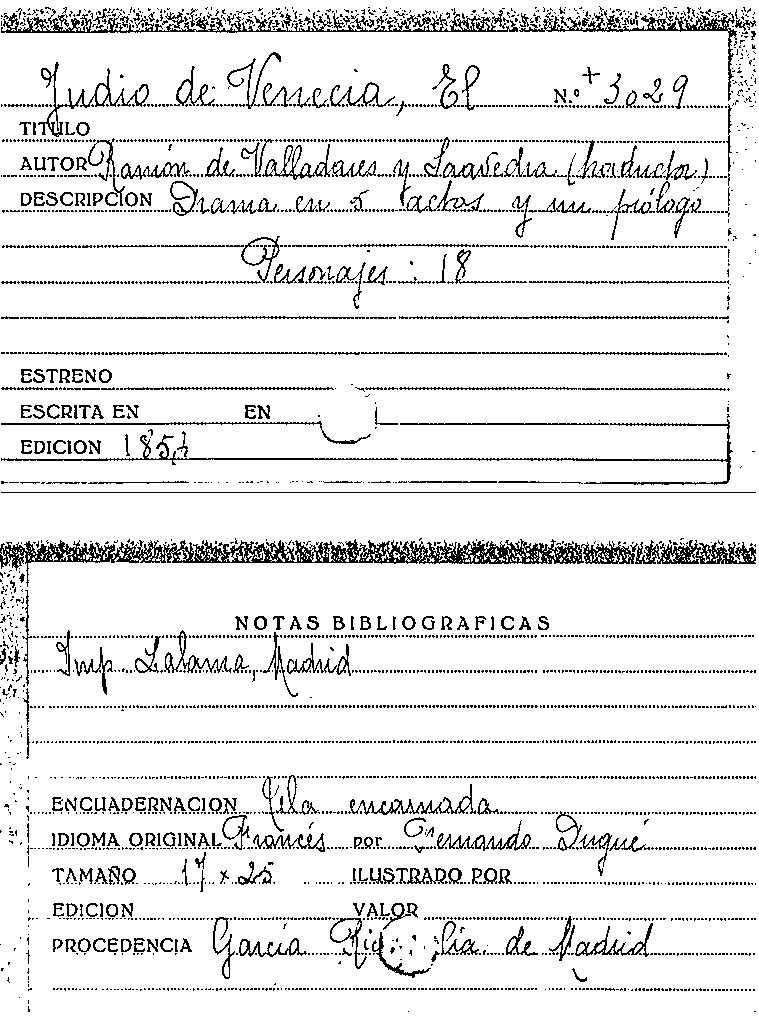 Judio de Venecia, El N.º + 3029
TITULO
AUTOR Ramón de Valladares y Saavedra (traductor)
DESCRIPCION Drama en 5 actos y un prólogo
Personajes : 18
ESTRENO
ESCRITA EN EN
EDICION
NOTAS BIBLIOGRAFICAS
Imp. Lalama, Madrid
ENCUADERNACION tela encarnada
IDIOMA ORIGINAL Francés por Fernando Dugué
TAMAÑO 17 x 25 ILUSTRADO POR
EDICION VALOR
PROCEDENCIA García de Madrid